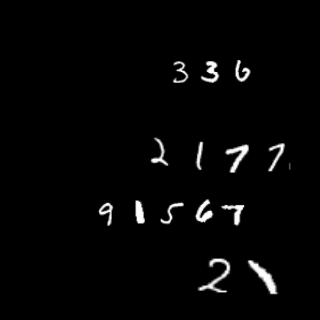 336
2177
91567
21